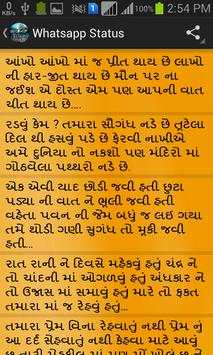 0 K/s
2:54 PM
Whatsapp Status
આંખો આંખો માં જ પ્રીત થાય છે લાખો
ની હાર-જીત થાય છે મૌન પર ના
જઈશ એ દોસ્ત એમ પણ આપની વાત
ચીત થાય છે....
રડવું કેમ ? તમારા સૌગંધ નડે છે તુટેલા
દિલ થી હસવું પડે છે ફેરવી નાખીએ
અમે દુનિયા નો નકશો પણ મંદિરો માં
ગોઠવેલા પથ્થરો નડે છે.
એક એવી યાદ છોડી જવી હતી છુટા
પડ્યા ની વાત ને ભૂલી જવી હતી
વહેતા પવન ની જેમ બધું જ લઇ ગયા
તમે તો થોડી સુગંધ તો મૂકી જવી
હતી...
રાત રાની ને દિવસે મહેકવું હતું ચંદ્ર ને
તો ચાંદની માં ઓગળવું હતું અંધકાર ને
તો ઉજાસ માં સમાવું હતું મારે તો ફક્ત
તમારા માં જ રેહવું હતું...
તમારા પ્રેમ વિના રેહવાતું નથી પ્રેમ નું
આ દર્દ સેહવાતું નથી કંઇક તો છે